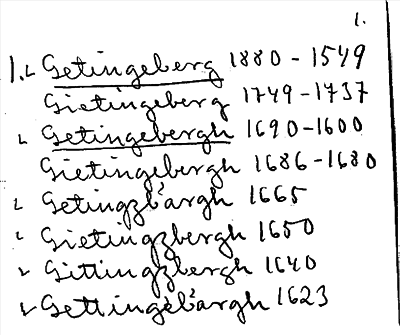 1.
1. ˪ Getingeberg 1880 - 1549
Gietingeberg 1749 - 1737
˪ Getingebergh 1690 - 1600
Gietingebergh 1686 - 1680
˪ Getingzbàrgh 1665
˪ Gietingzbergh 1650
˪ Gittingzbergh 1640
˪ Gettingebàrgh 1623